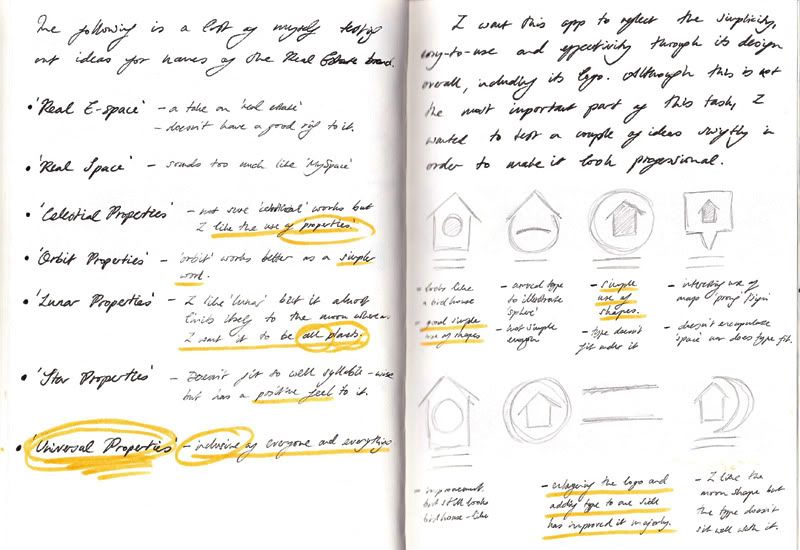 The following is a list of myself testing
out ideas for names of the Real Estate brand.
• 'Real E-space' - a take on 'real estate'
- doesn't have a good ring to it.
• 'Real Space' - sounds too much like 'MySpace'
• 'Celestial Properties' - not sure 'celestial' works but
I like the use of 'properties'
• 'Orbit Properties' - 'orbit' works better as a simple
word.
• 'Lunar Properties' - I like 'lunar' but it almost
limits itself to the moon whereas
I want it to be all places.
• 'Star Properties' - Doesn't fit so well syllable-wise
but has a positive feel to it.
• 'Universal Properties' - inclusive of everyone and everything
I want this app to reflect the simplicity,
easy-to-use and effectivity through its design
overall, including its logo. Although this is not
the most important part of this task, I
wanted to test a couple of ideas swiftly in
order to make it look professional.
- looks like
a birdhouse
- good simple
use of shapes
- curved type
to illustrate
sphere
- not simple
enough
- simple
use of
shapes.
- type doesn't
fit under it
- interesting use of
maps 'prong' sign
- doesn't encapsulate
'space' nor does type fit.
- improvement
but still looks
birdhouse-like
- enlarging the logo and
adding type to one side
has improved it majorly.
- I like the
moon shape but
the type doesn't
sit well with it.